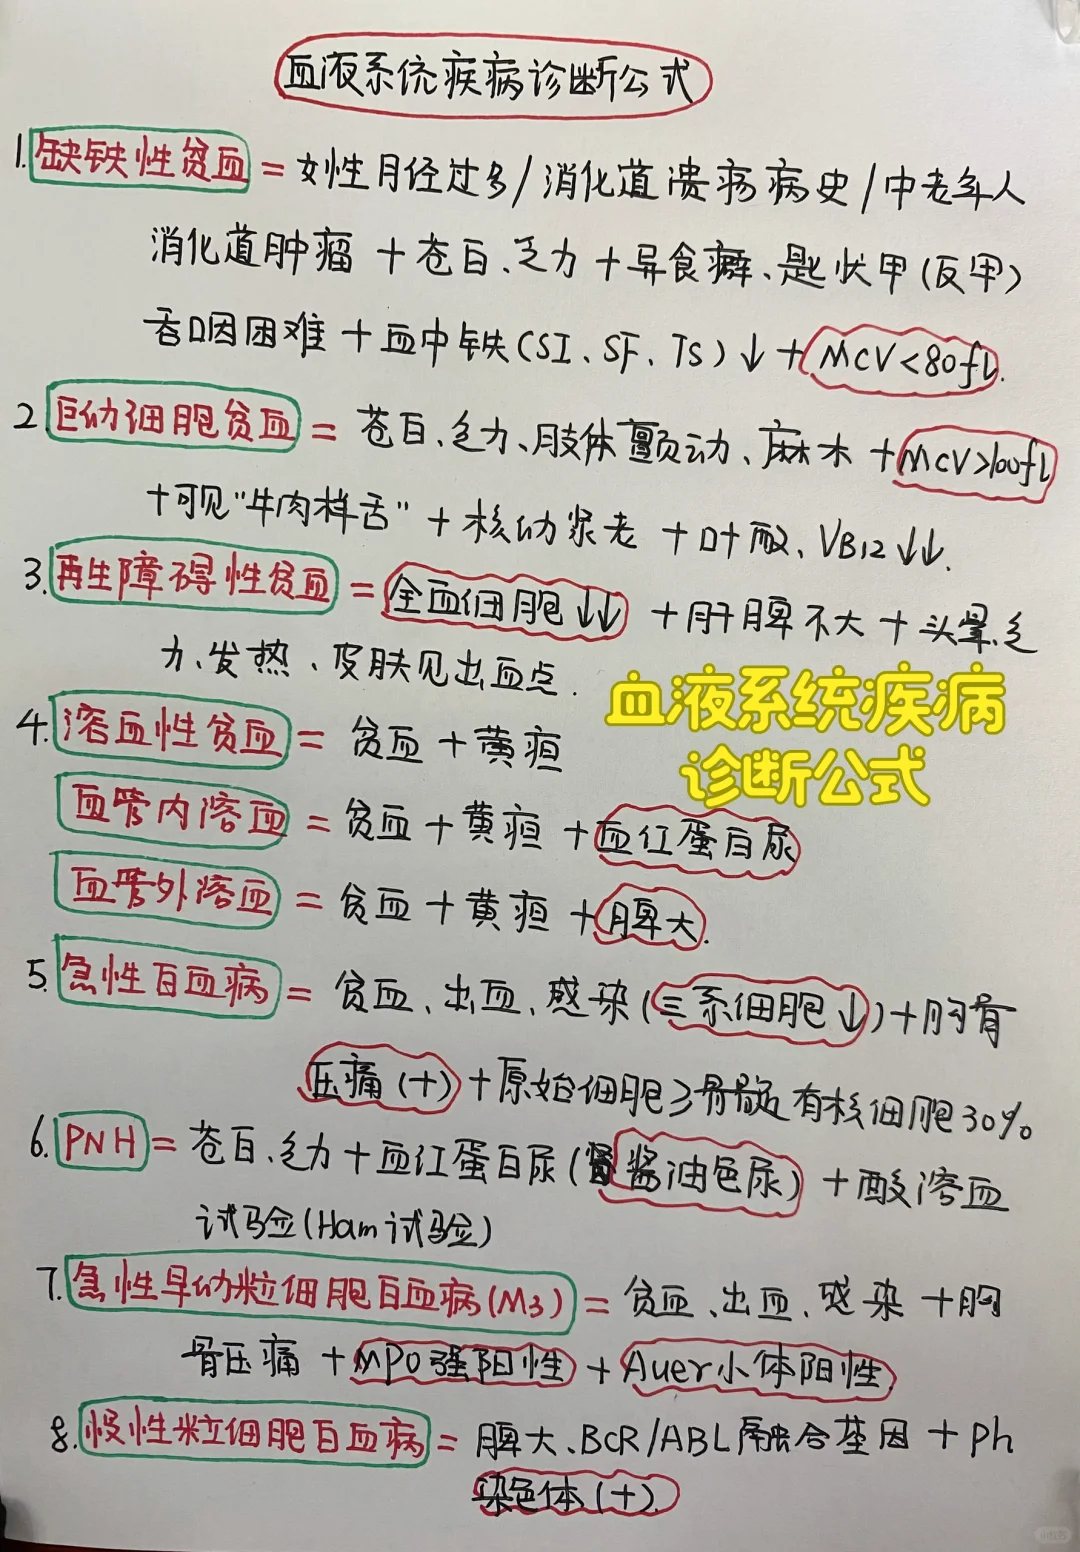 血液系统疾病诊断公式
1.缺铁性贫血=女性月经过多/消化道溃疡病史/中老年人
消化道肿瘤+苍白、乏力+异食癖、匙状甲(反甲)
吞咽困难+血中铁(SI、SF、TS)↓+MCV<80fL.
2.巨幼细胞贫血=苍白、乏力、肢体颤动、麻木+MCV>100fL
+可见"牛肉样舌"+核幼浆老+叶酸、VB12↓↓.
3.再生障碍性贫血=全血细胞↓↓+肝脾不大+头晕、乏
力、发热、皮肤见出血点.
血液系统疾病
诊断公式
4.溶血性贫血=贫血+黄疸
血管内溶血=贫血+黄疸+血红蛋白尿
血管外溶血=贫血+黄疸+脾大.
5.急性白血病=贫血、出血、感染(三系细胞↓)+胸骨
压痛(+)+原始细胞≥骨髓有核细胞30%
6.PNH=苍白、乏力+血红蛋白尿(酱油色尿)+酸溶血
试验(Ham试验)
7.急性早幼粒细胞白血病(M3)=贫血、出血、感染+胸
骨压痛+MPO强阳性+Auer小体阳性
8.慢性粒细胞白血病=脾大、BCR/ABL融合基因+Ph
染色体(+).